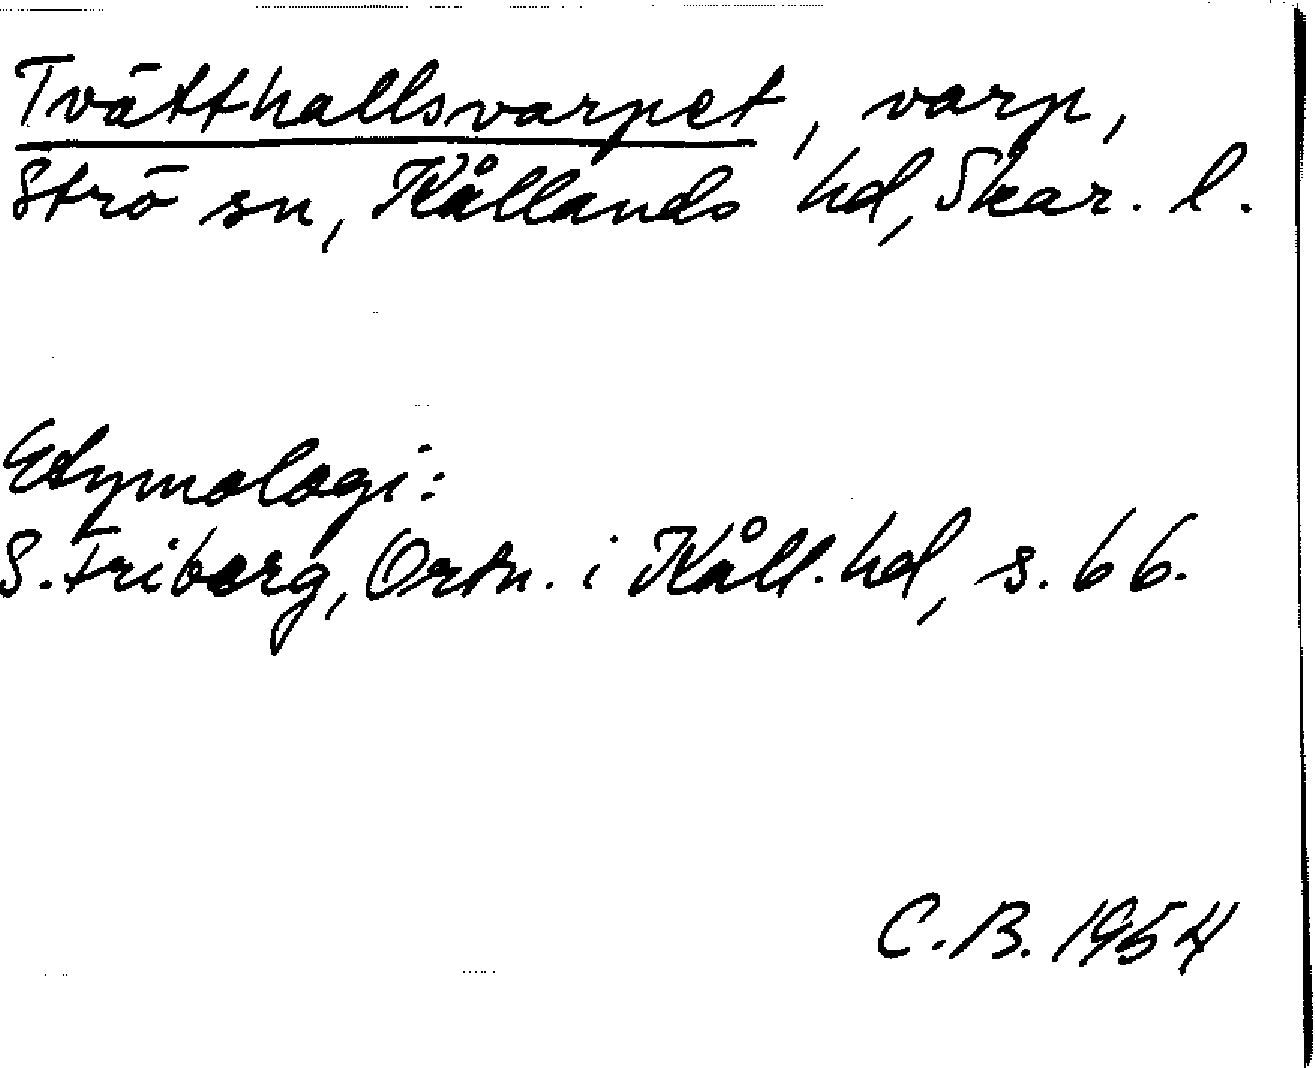 Tvätthallsvarpet, varp,
Strö sn, Kållands hd, Skar. l.
Etymologi:
S. Friberg, Ortn. i Kåll. hd, s. 66.
C. B. 1954